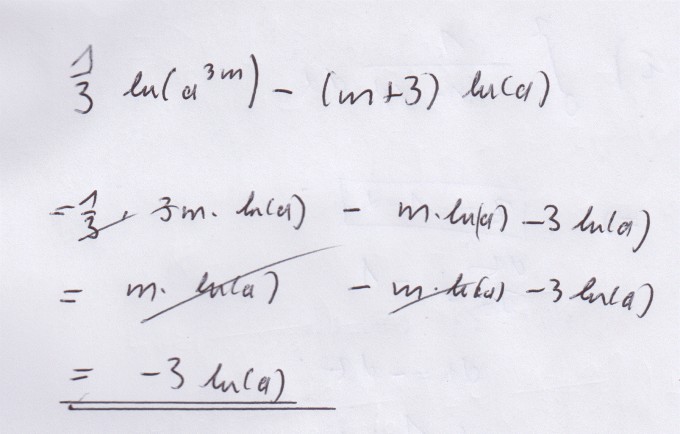 1/3 ln(a^3m) - (m+3) ln(a)
= 1/3 · 3m · ln(a) - m·ln(a) - 3 ln(a)
= m · ln(a) - m·ln(a) - 3 ln(a)
= -3 ln(a)